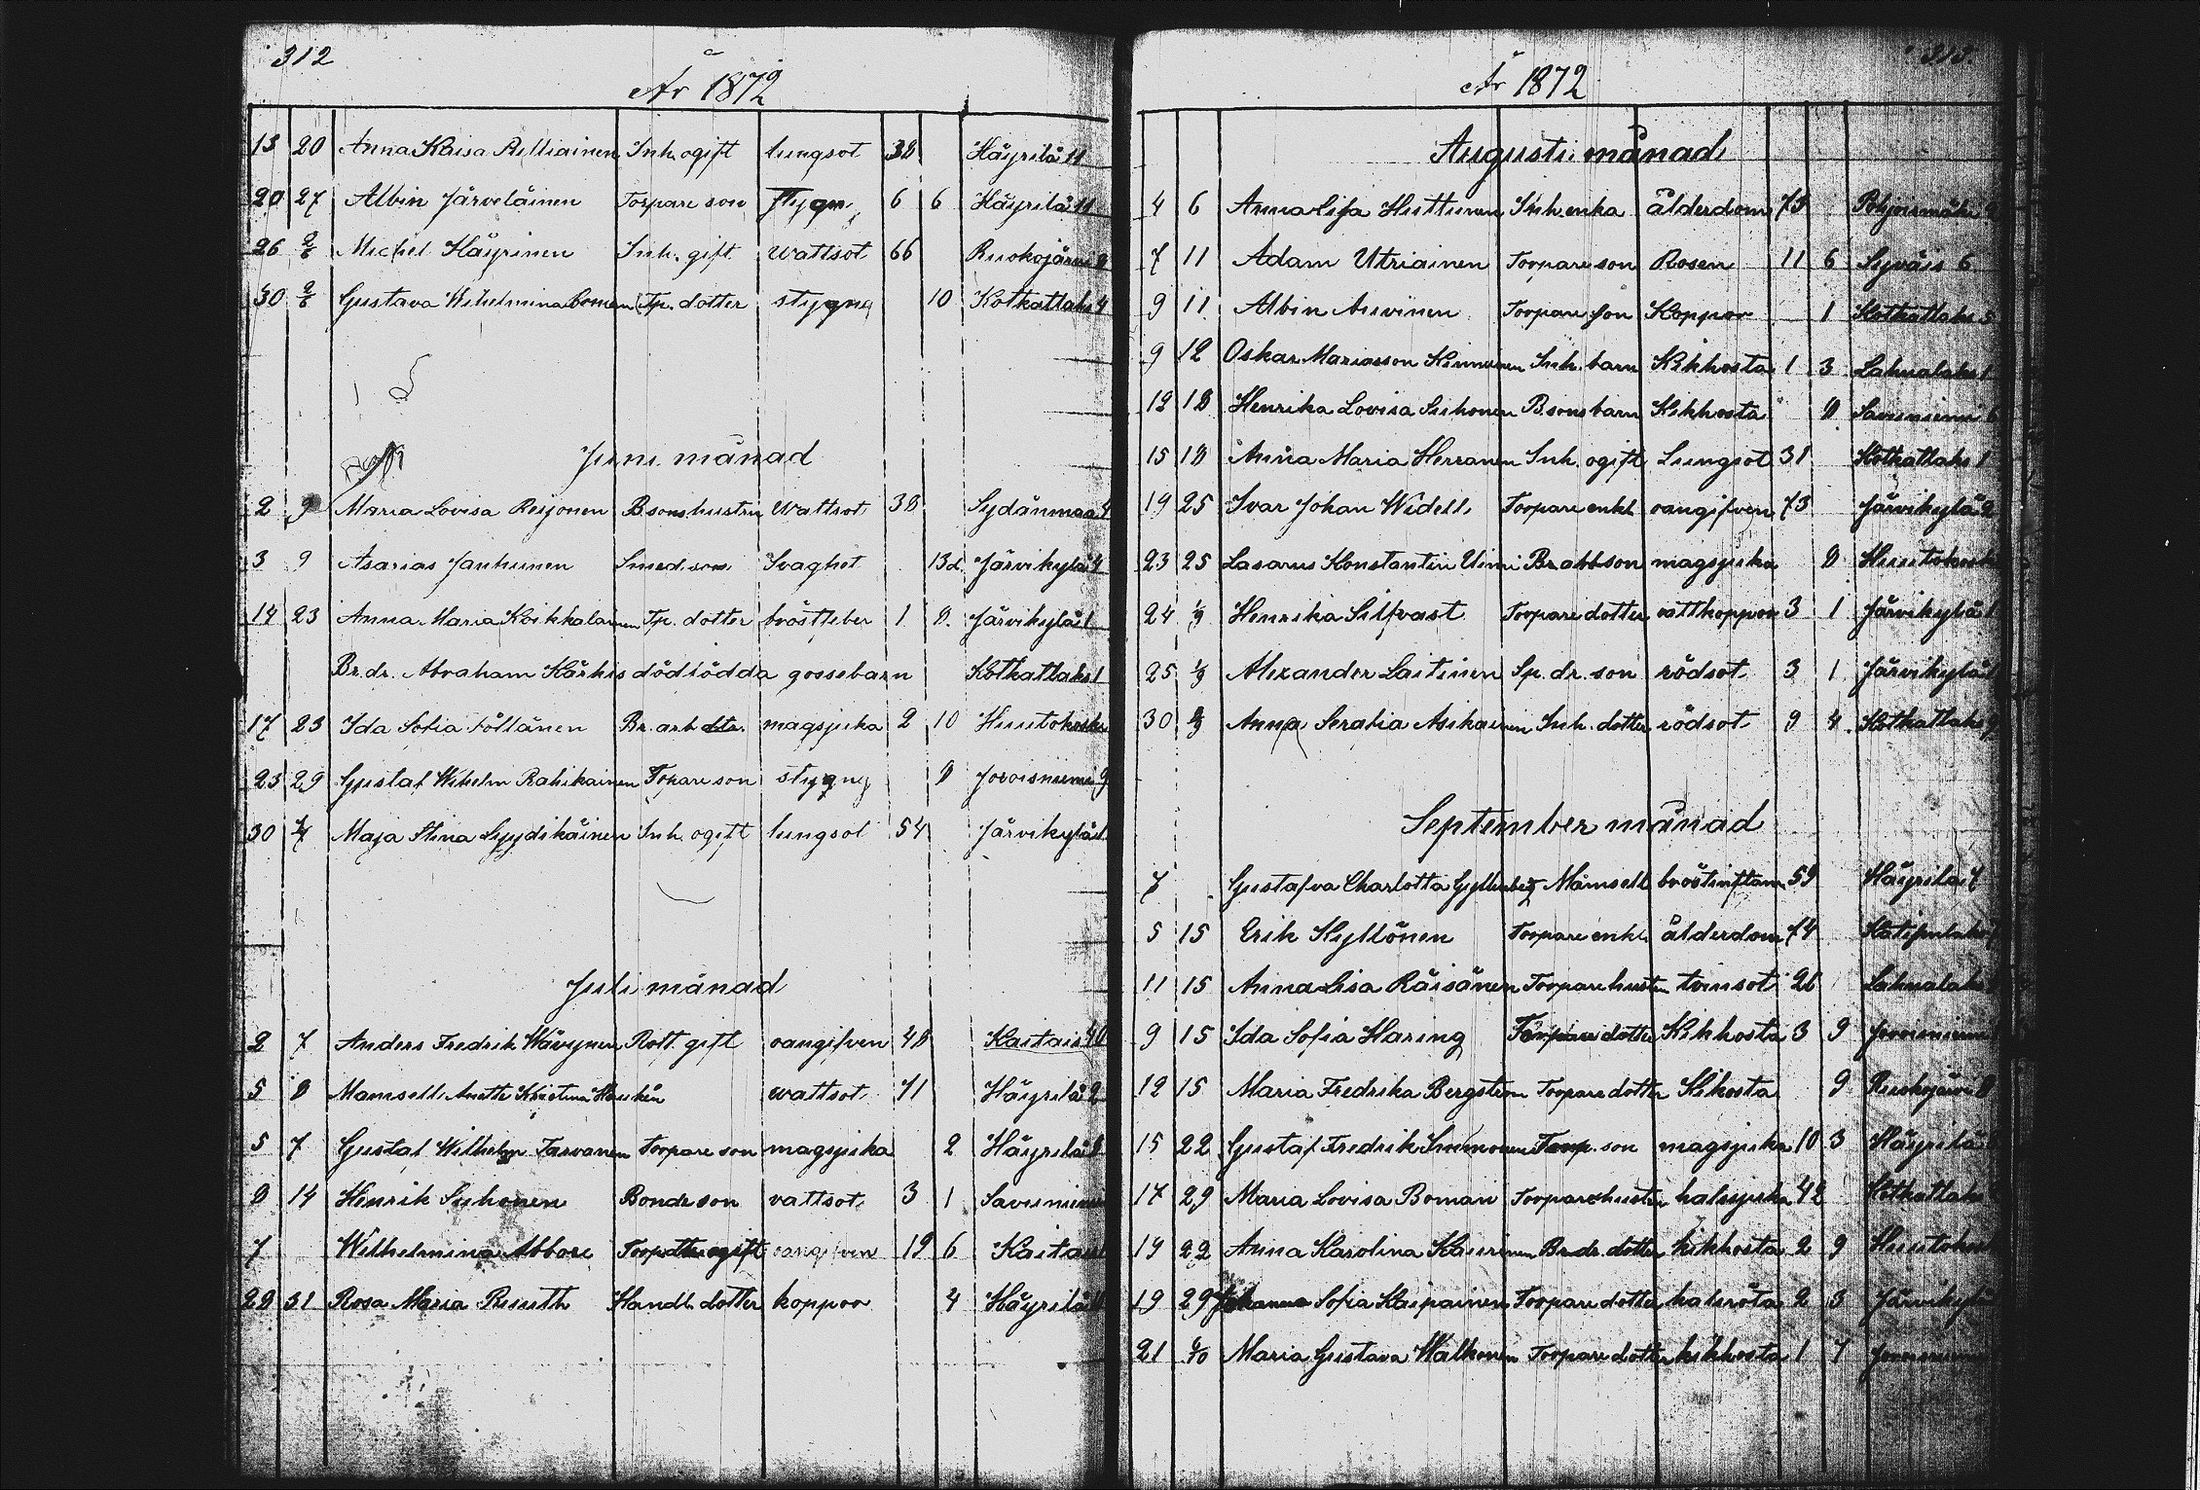 312
År 1872
13 20 Anna Kaisa Pelliainen Inh. ogift lungsot 38 Häyrilä 11
20 27 Albin Järveläinen Torpare son stygn 6 6 Häyrilä 11
26 2/6 Michel Häyrinen Inh. gift wattsot 66 Ruokojärvi 8
30 2/6 Gustava Wilhelmina Boman Tp. dotter stygn 10 Kotkatlaks 4
Juni månad
2 9 Maria Lovisa Reijonen B.sons hustru wattsot 38 Sydänmaa 4
3 9 Asarias Janhunen Smed. son Svaghet 13d. Järvikylä 4
14 23 Anna Maria Koikkalainen Tp. dotter bröstfeber 1 8 Järvikylä 1
Br.dr. Abraham Kärkis dödfödda gossebarn Kotkatlaks 1
17 23 Ida Sofia Föllänen Br. arb. dtr. magsjuka 2 10 Huutokoski
23 29 Gustaf Wilhelm Rahikainen Topare son stygn 8 Joroisniemi 9
30 1/7 Maja Stina Lyydikäinen Inh. ogift lungsot 54 Järvikylä 1
Juli månad
2 7 Anders Fredrik Wäyrynen Rott. gift oangifven 48 Kaitais 10
5 8 Mamsell Anette Kristina wattsot 71 Häyrilä 2
5 7 Gustaf Wilhelm Tarvanen Torpare son magsjuka 2 Häyrilä 8
8 14 Henrik Suhonen Bonde son vattsot 3 1 Savuniemi
7 Wilhelmina Abbore Torp.dtter ogift oangifven 19 6 Kaitais
28 31 Rosa Maria Handl. dotter koppor 4 Häyrilä
313
År 1872
Augusti månad
4 6 Anna Lisa Huttunen Inh. enka ålderdom 73 Pohjoismäki
7 11 Adam Utriainen Torpare son Rosen 11 6 Syväis 6
9 11 Albin Auvinen Torpare son Koppor 1 Kotkatlaks 5
9 12 Oskar Mariasson Kinnunen Inh. barn Kikhosta 1 3 Lahnalaks 1
12 18 Henrika Lovisa Suhonen B.sons barn Kikhosta 8 Savuniemi 6
15 18 Anna Maria Herranen Inh. ogift Lungsot 31 Kotkatlaks 1
19 25 Ivar Johan Widell Torpare enkl. oangifven 73 Järvikylä 2
23 25 Lasarus Konstantin Uimi Br.arb.son magsjuka 8 Huutokoski
24 1/9 Henrika Silfvast Torpare dotter vattkoppor 3 1 Järvikylä 1
25 1/9 Alexander Laitinen Sp. dr. son rödsot 3 1 Järvikylä 1
30 8/9 Anna Serafia Asikainen Inh. dotter rödsot 9 4 Kotkatlaks
September månad
7 Gustafva Charlotta Gyllenbeg Mamsell bröstinflam. 59 Häyrilä 7
5 15 Erik Kyllönen Torpare enkl. ålderdom 74
11 15 Anna Lisa Räisänen Torpare hustru tvinsot 26 Lahnalaks
9 15 Ida Sofia Haring Torpare dotter Kikhosta 3 9 Joroisniemi
12 15 Maria Fredrika Bergström Torpare dotter Kikosta 9 Ruokojärvi 8
15 22 Gustaf Fredrik Immonen Torp. son magsjuka 10 3 Häyrilä
17 29 Maria Lovisa Boman Torpare hustru halssjuka 42 Kotkatlaks
19 22 Anna Karolina Kaurinen Br.dr. dotter kikhosta 2 9 Huutokos
19 29 Johanna Sofia Kaipainen Torpare dotter halsröta 2 3 Järvikylä
21 6/10 Maria Gustava Walkonen Torpare dotter kikhosta 1 7 Joroisniemi